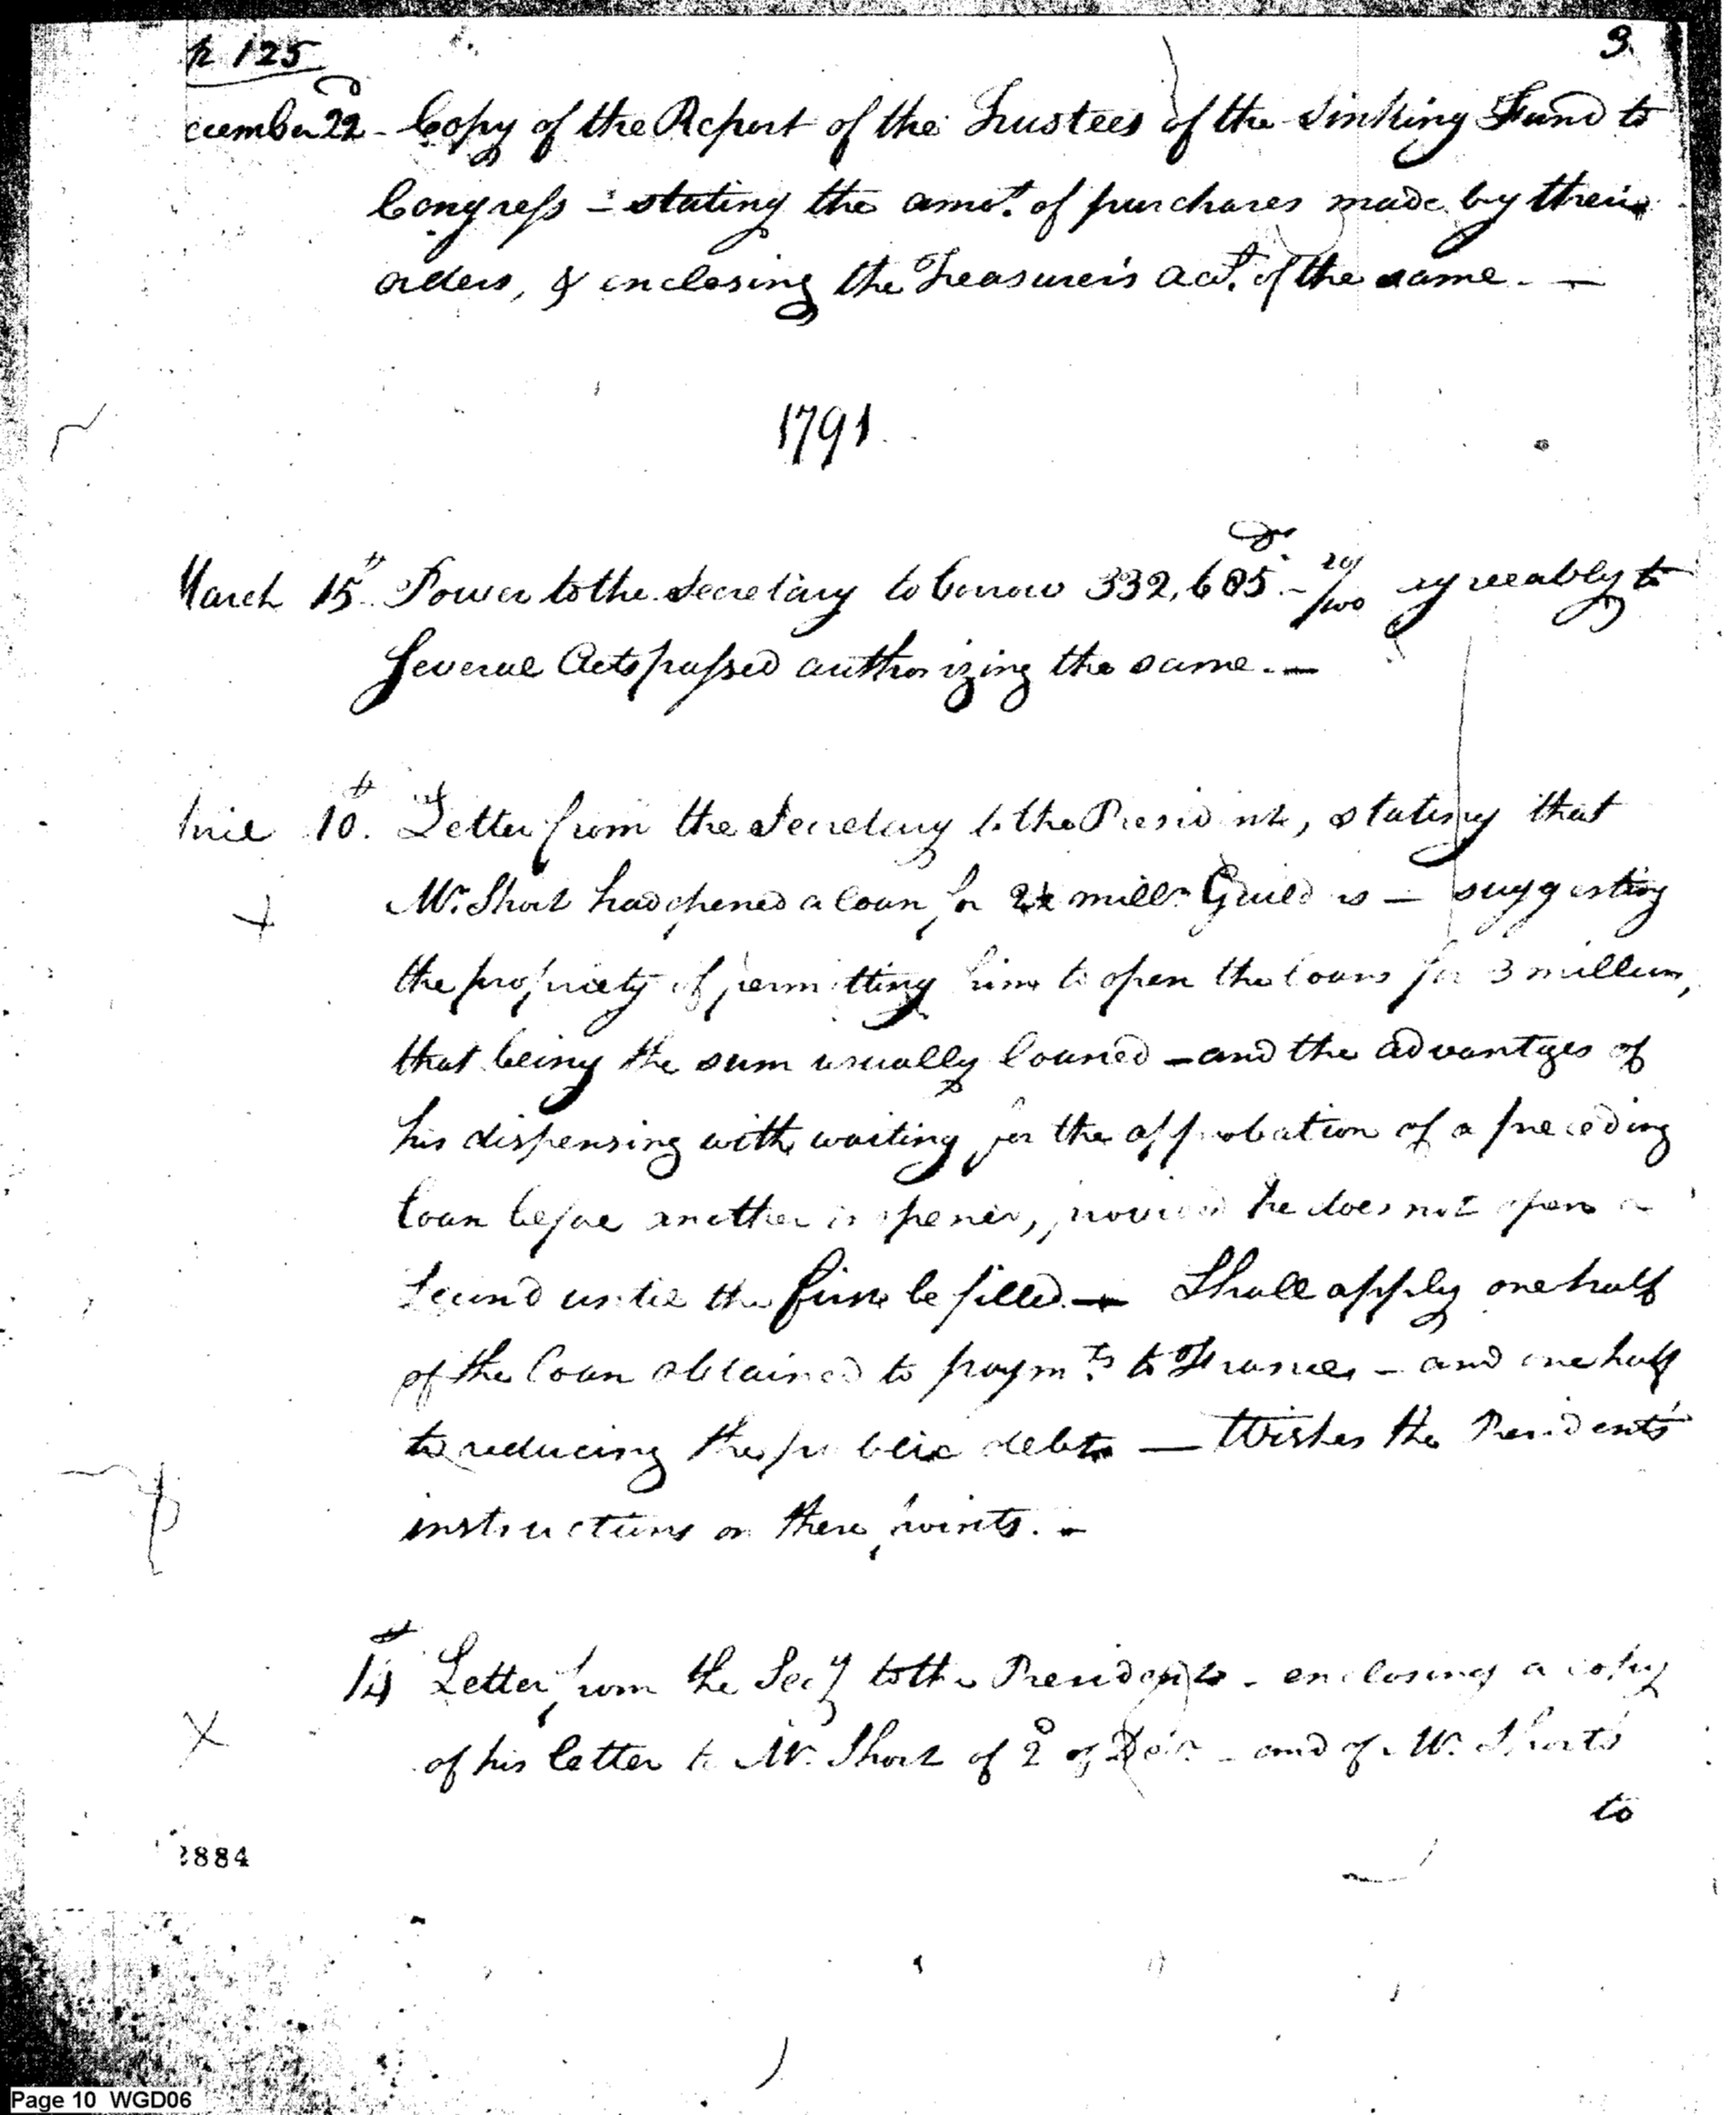 p 125
3.
cember 22d - Copy of the Report of the Trustees of the Sinking Fund to
Congress - stating the amot. of purchases made by their
orders, & enclosing the Treasurer's acct. of the same. —
1791.
March 15th. Power to the Secretary to borrow 332,685 Drs. 20/100 agreeably to
several Acts passed authorizing the same. —
10th. Letter from the Secretary to the President, stating that
Mr. Short had opened a loan for 2½ milln Guilders — suggesting
the propriety of permitting him to open the loans for 3 millions,
that being the sum usually loaned — and the advantages of
his dispensing with waiting for the approbation of a preceding
loan before another is opened, provided he does not open a
second until the first be filled. — Shall apply one half
of the loan obtained to paymts. to France - and one half
to reducing the public debt — Wishes the President's
instructions on these points. -
14th Letter from the Secy to the President - enclosing a copy
of his letter to Mr. Short of 2d of - and of Mr. Short's
to
2884
Page 10 WGD06